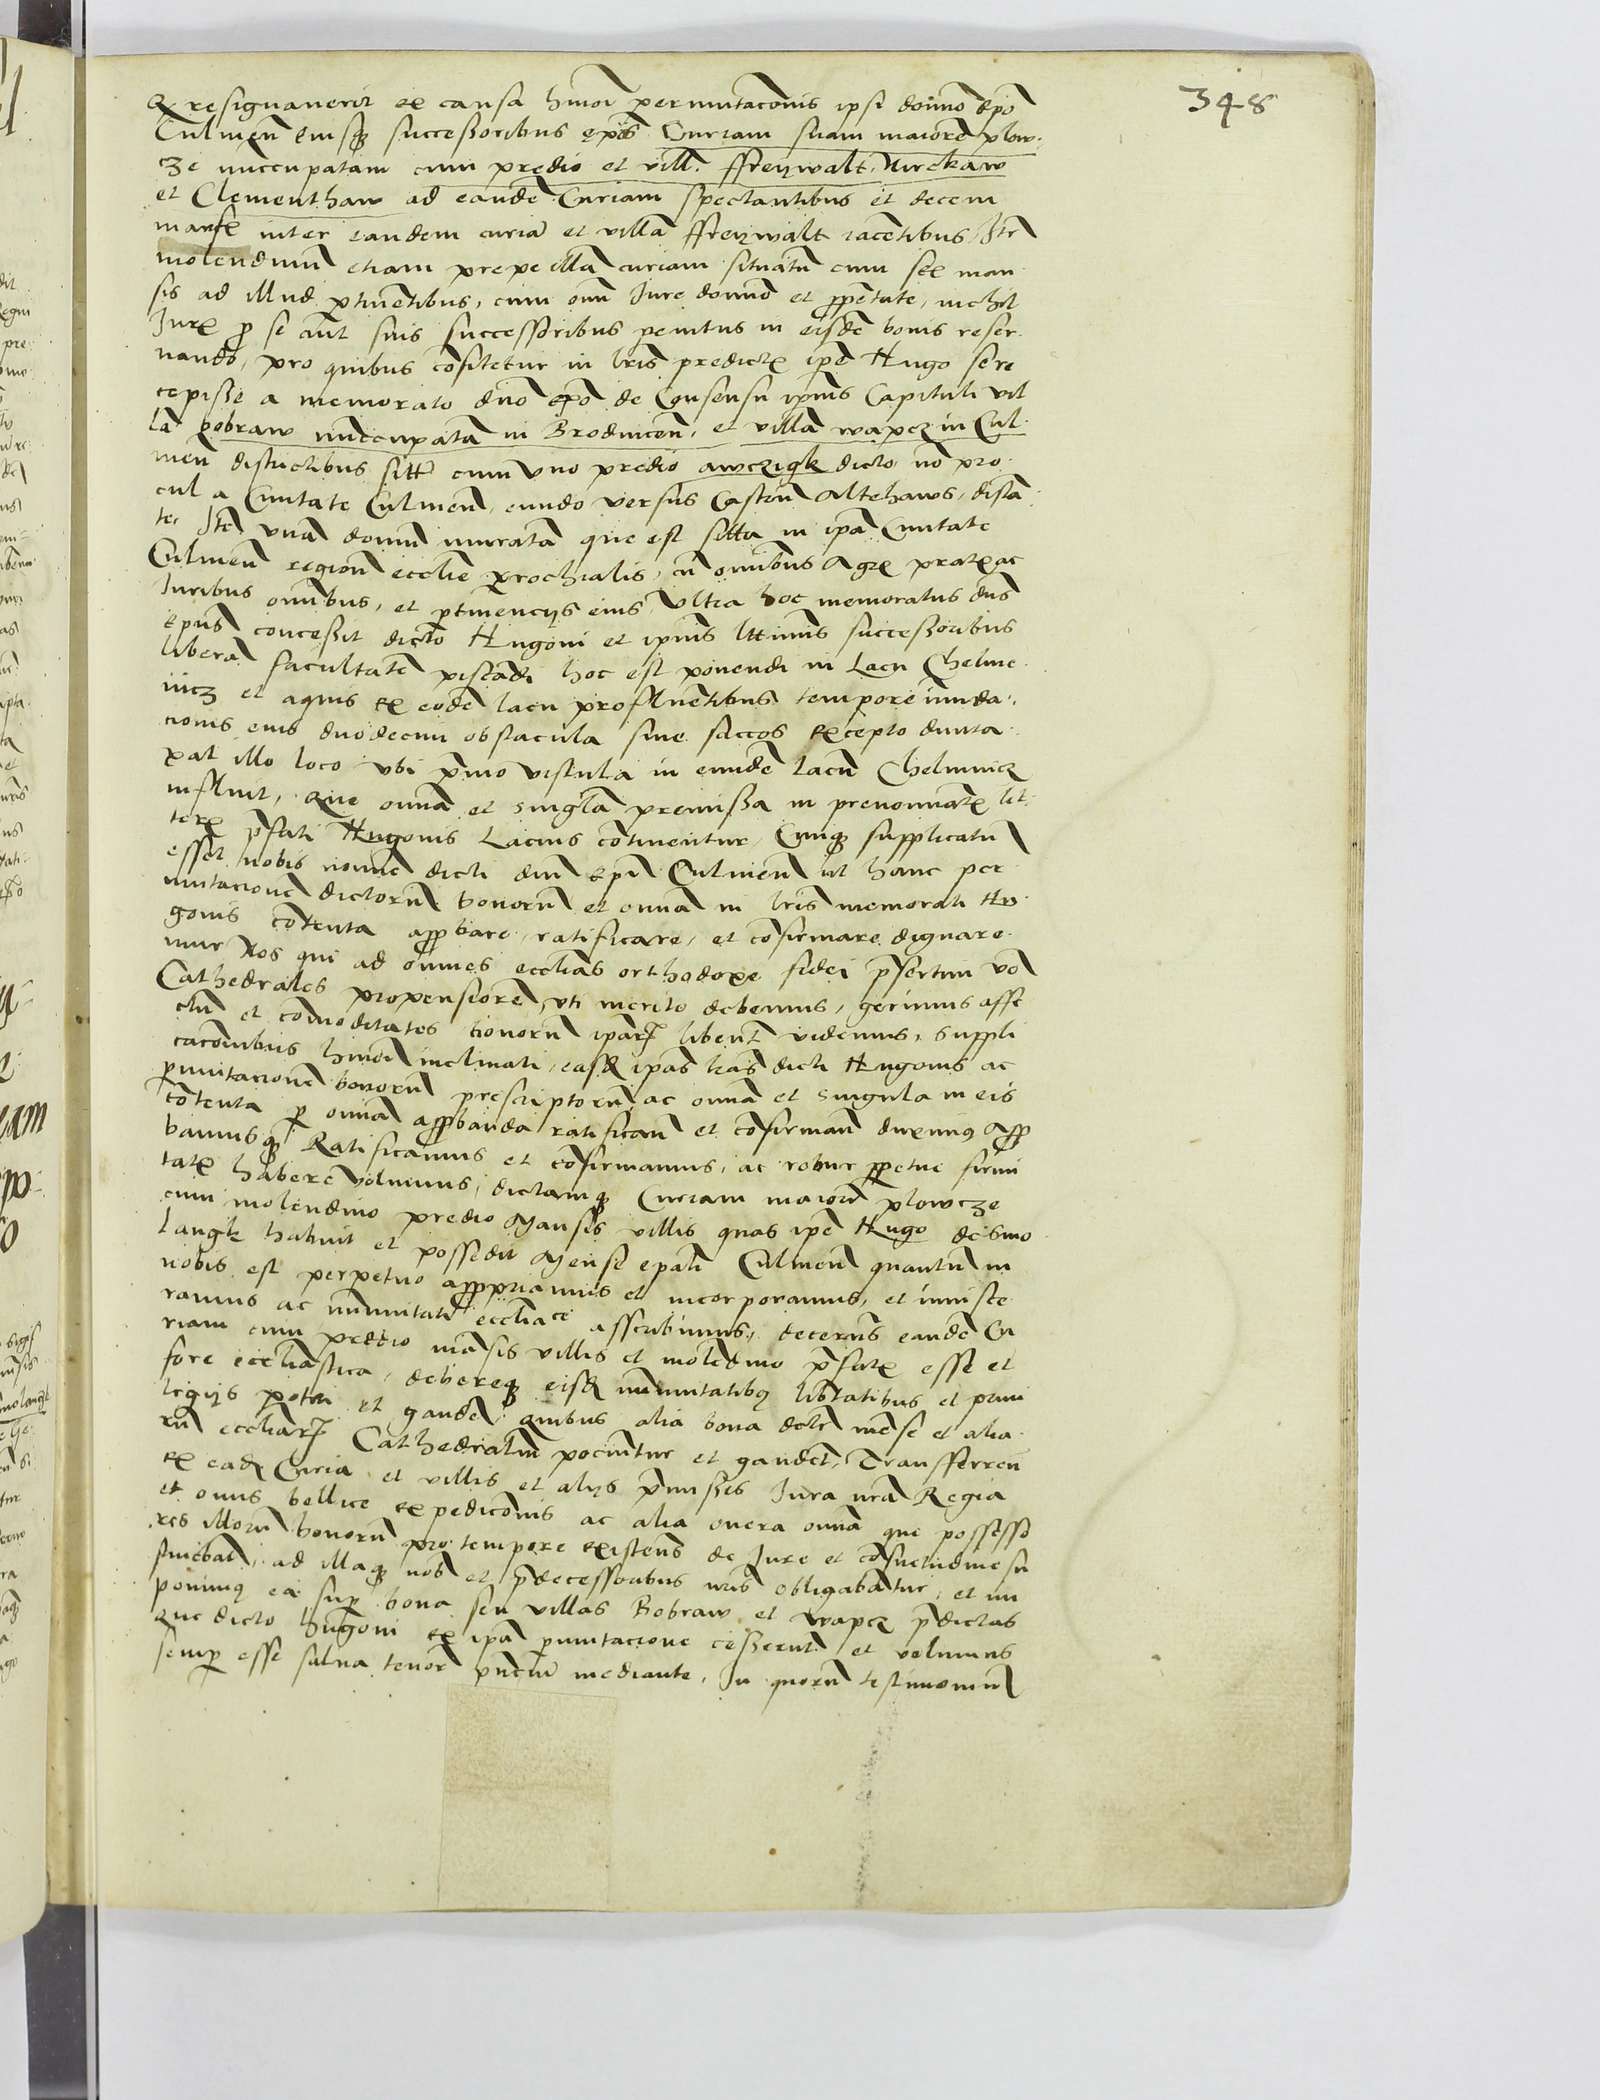 348
& resignaverit ex causa hmoi permutacõnis ipsi domno Epo
Culmeñ eiusq successoribus epis Curiam suam maiorẽ plow-
ze nuncupatam cum predio et vill. ffreywalt, Mirckaw
et Clementhaw ad eandẽ Curiam spectantibus et decem
mansis inter eandem curiã et villã ffreywalt iacẽtibus, Itm
molendinũ etiam prope illã curiam situatũ cum sex man
sis ad illud ptinẽtibus, cum omi Iure domno et ppetate, nichil
Iurs p se aut suis successoribus penitus in eisdẽ bonis reser
uando, pro quibus cõfitetur in lris predictis ipe Hugo se re
cepisse a memorato dno epo de Consensu ipius Capituli vil
lã Bobraw nũccupatã in Brodniceñ, et villã wapcz in Cul
meñ districtibus sitt cum vno predio awczigk dicto nõ pro
cul a Ciuitate Culmeñ, eundo versus Castrũ Altehaws, distã
te, Itẽ vnã domũ muratã que est sitta in ipã Ciuitate
Culmeñ regioñ ecclie prochialis, cũ omibus Agris pratis ac
Iuribus omibus, et ptinencijs eius, Vltra hoc memoratus dns
Epus concessit dicto Hugoni et ipius lttimis successoribus
liberã facultatẽ piscãdi hoc est ponendi in Lacu Chelme
nicz et aquis ex eodẽ lacu profluẽtibus tempore inunda
cionis eius duodecim obstacula siue saccos excepto dunta
xat illo loco vbi pmo vistula in eundẽ Lacũ Chelmnicz
influit, Que omia et singla premissa in prenominatis lit
teris pfati Hugonis Lacius cõtinentur, Cumq supplicatũ
esset nobis nomine dicti dni epi Culmeñ ut hanc per
mutacionẽ dictorũ bonorũ et omia in lris memorati Hu
gonis cõtenta appbare, ratificare, et cõfirmare dignare
mur Nos qui ad omnes ecclias orthodoxe fidei psertim vo
Cathedrales propensiorẽ, vti merito debemus, gerimus affe
ctũ et cõmoditates bonorũ ipar libent videmus, suppli
cacõnibus hmoi inclinati, easd ipas lras dicti Hugonis ac
pmutacionẽ bonorũ prescriptorũ, ac omia et singula in eis
cõtenta p omia appbanda ratificañ et cõfirmañ duximus App
bamusq Ratificamus et cõfirmamus, ac robur ppetue firmi
tatis habere volumus, dictamq Curiam maiorẽ plowcze
cum molendino predio Mansis villis quas ipe Hugo de Smo
langk habuit et possedit Mense epali Culmeñ quantũ in
nobis est perpetuo apppriamus et incorporamus, et inuisce
ramus ac immunitati ecclliace asscribimus, decernẽs eandẽ Cu
riam cum predio mãsis villis et molẽdino pfatis esse et
fore eccliastica, debereq eisd immunitatibus libtatibus et priui
legijs potiri et gaudẽ, quibus alia bona dcte mẽse et alia
rũ eccliar Cathedraliũ pociuntur et gaudet, Transfferrẽ
ex ead Curia et villis et alijs pmissis Iura nra Regia
et onus bellice expedicõnis ac alia onera omia que possesso
res illorũ bonorũ pro tempore existens de Iure et cõsuetudine su
stinebat, ad illaq nobis et pdecessoribus nris obligabãtur, et im
ponimus ea sup bona seu villas Bobraw et wapcz pdictas
que dicto hugoni ex ipa pmutacione cesserũt et volumus
semp esse salua tenore pncium mediante, In quorũ testimoniũ